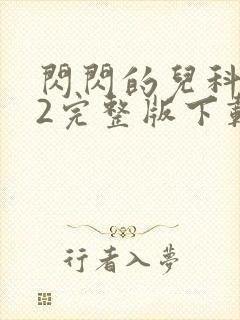 閃閃的兒科
2完整版下載
行者入夢